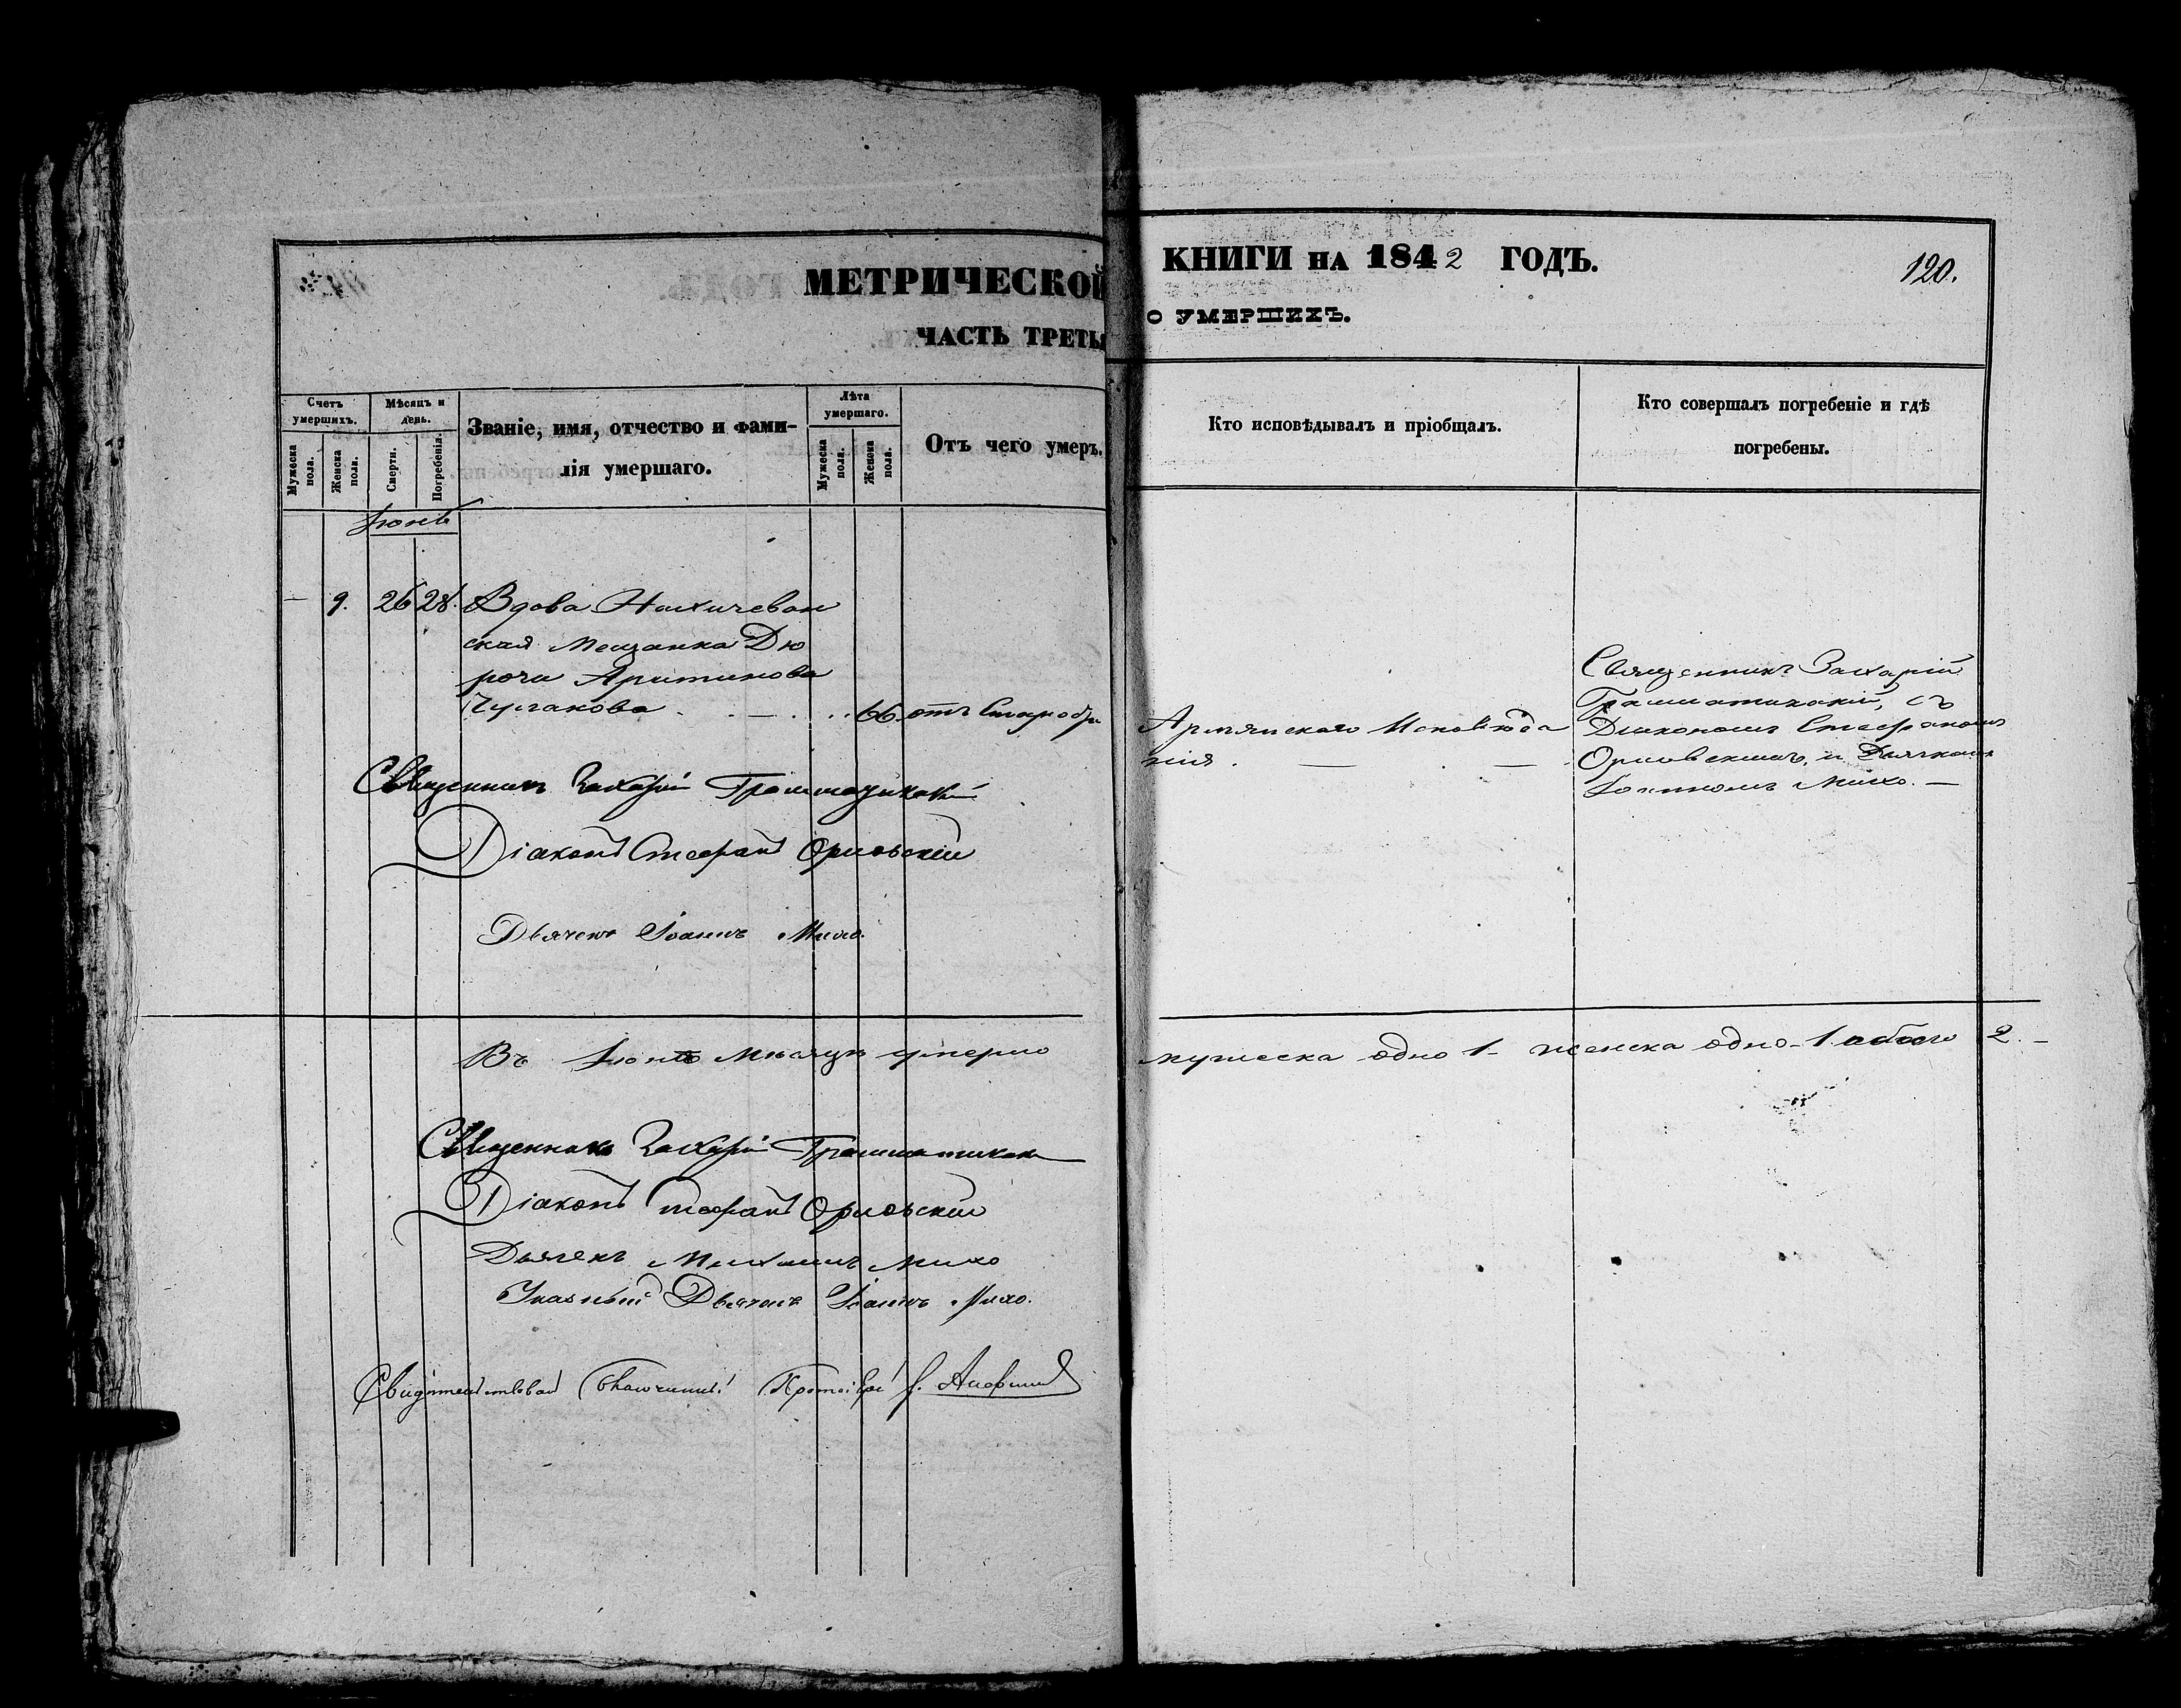 МЕТРИЧЕСКОЙ КНИГИ НА 1842 ГОДЪ.
120.
ЧАСТЬ ТРЕТЬЯ О УМЕРШИХЪ.
Счетъ умершихъ.
Мужеска пола.
Женска пола.
Мѣсяцъ и день.
Смерти.
Погребенія.
Званіе, имя, отчество и фами-
лія умершаго.
Лѣта умершаго.
Мужеска пола.
Женска пола.
Отъ чего умеръ.
Кто исповѣдывалъ и пріобщалъ.
Кто совершалъ погребеніе и гдѣ
погребены.
Іюнь
— 9. 26 28. Вдова Нахичеван
ская Мещанка Дю
рочи Аритинова
66 отъ Старости
Армянскаго Исповѣда
нія. — —
Священникъ Захарій
Грамматикакій, съ
Діакономъ Стефаномъ
Орловскимъ, и Дьячкомъ
Іоанномъ Михо. —
Священникъ Захарій Грамматикакій
Діаконъ Стефанъ Орловскій
Дьячекъ Іоаннъ Михо.
Въ Іюнѣ Мѣсяцѣ умерло мужеска одно 1 - женска одно - 1 обоего 2. -
Священникъ Захарій Грамматикаки
Діаконъ Стефанъ Орловскій
Дьячекъ Михаилъ Михо
Указный Дьячекъ Іоаннъ Михо.
Свидѣтельствовалъ Благочинный Протоіерей